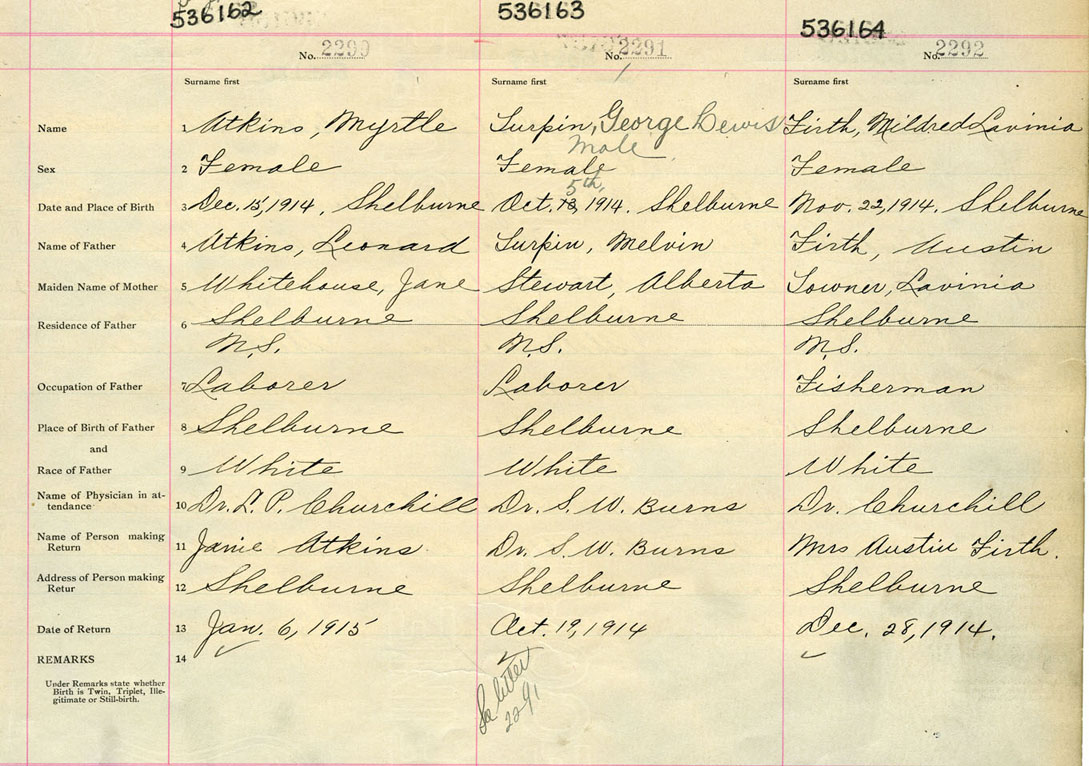 536162 536163 536164
No. 2290 No. 2291 No. 2292
Surname first Surname first Surname first
Name 1 Atkins, Myrtle Turpin, George Lewis Firth, Mildred Lavinia
Male
Sex 2 Female Female Female
5th,
Date and Place of Birth 3 Dec. 15, 1914, Shelburne Oct. 1914. Shelburne Nov. 22, 1914. Shelburne
Name of Father 4 Atkins, Leonard Turpin, Melvin Firth, Austin
Maiden Name of Mother 5 Whitehouse, Jane Stewart, Alberta Towner, Lavinia
Residence of Father 6 Shelburne Shelburne Shelburne
N.S. N.S. N.S.
Occupation of Father 7 Laborer Laborer Fisherman
Place of Birth of Father 8 Shelburne Shelburne Shelburne
and
Race of Father 9 White White White
Name of Physician in at-
tendance 10 Dr. L. P. Churchill Dr. S. W. Burns Dr. Churchill
Name of Person making
Return 11 Janie Atkins Dr. S. W. Burns Mrs Austin Firth.
Address of Person making
Retur 12 Shelburne Shelburne Shelburne
Date of Return 13 Jan. 6, 1915 Oct. 19, 1914 Dec. 28, 1914.
REMARKS 14
Under Remarks state whether
Birth is Twin, Triplet, Ille-
gitimate or Still-birth.
See letter
2291